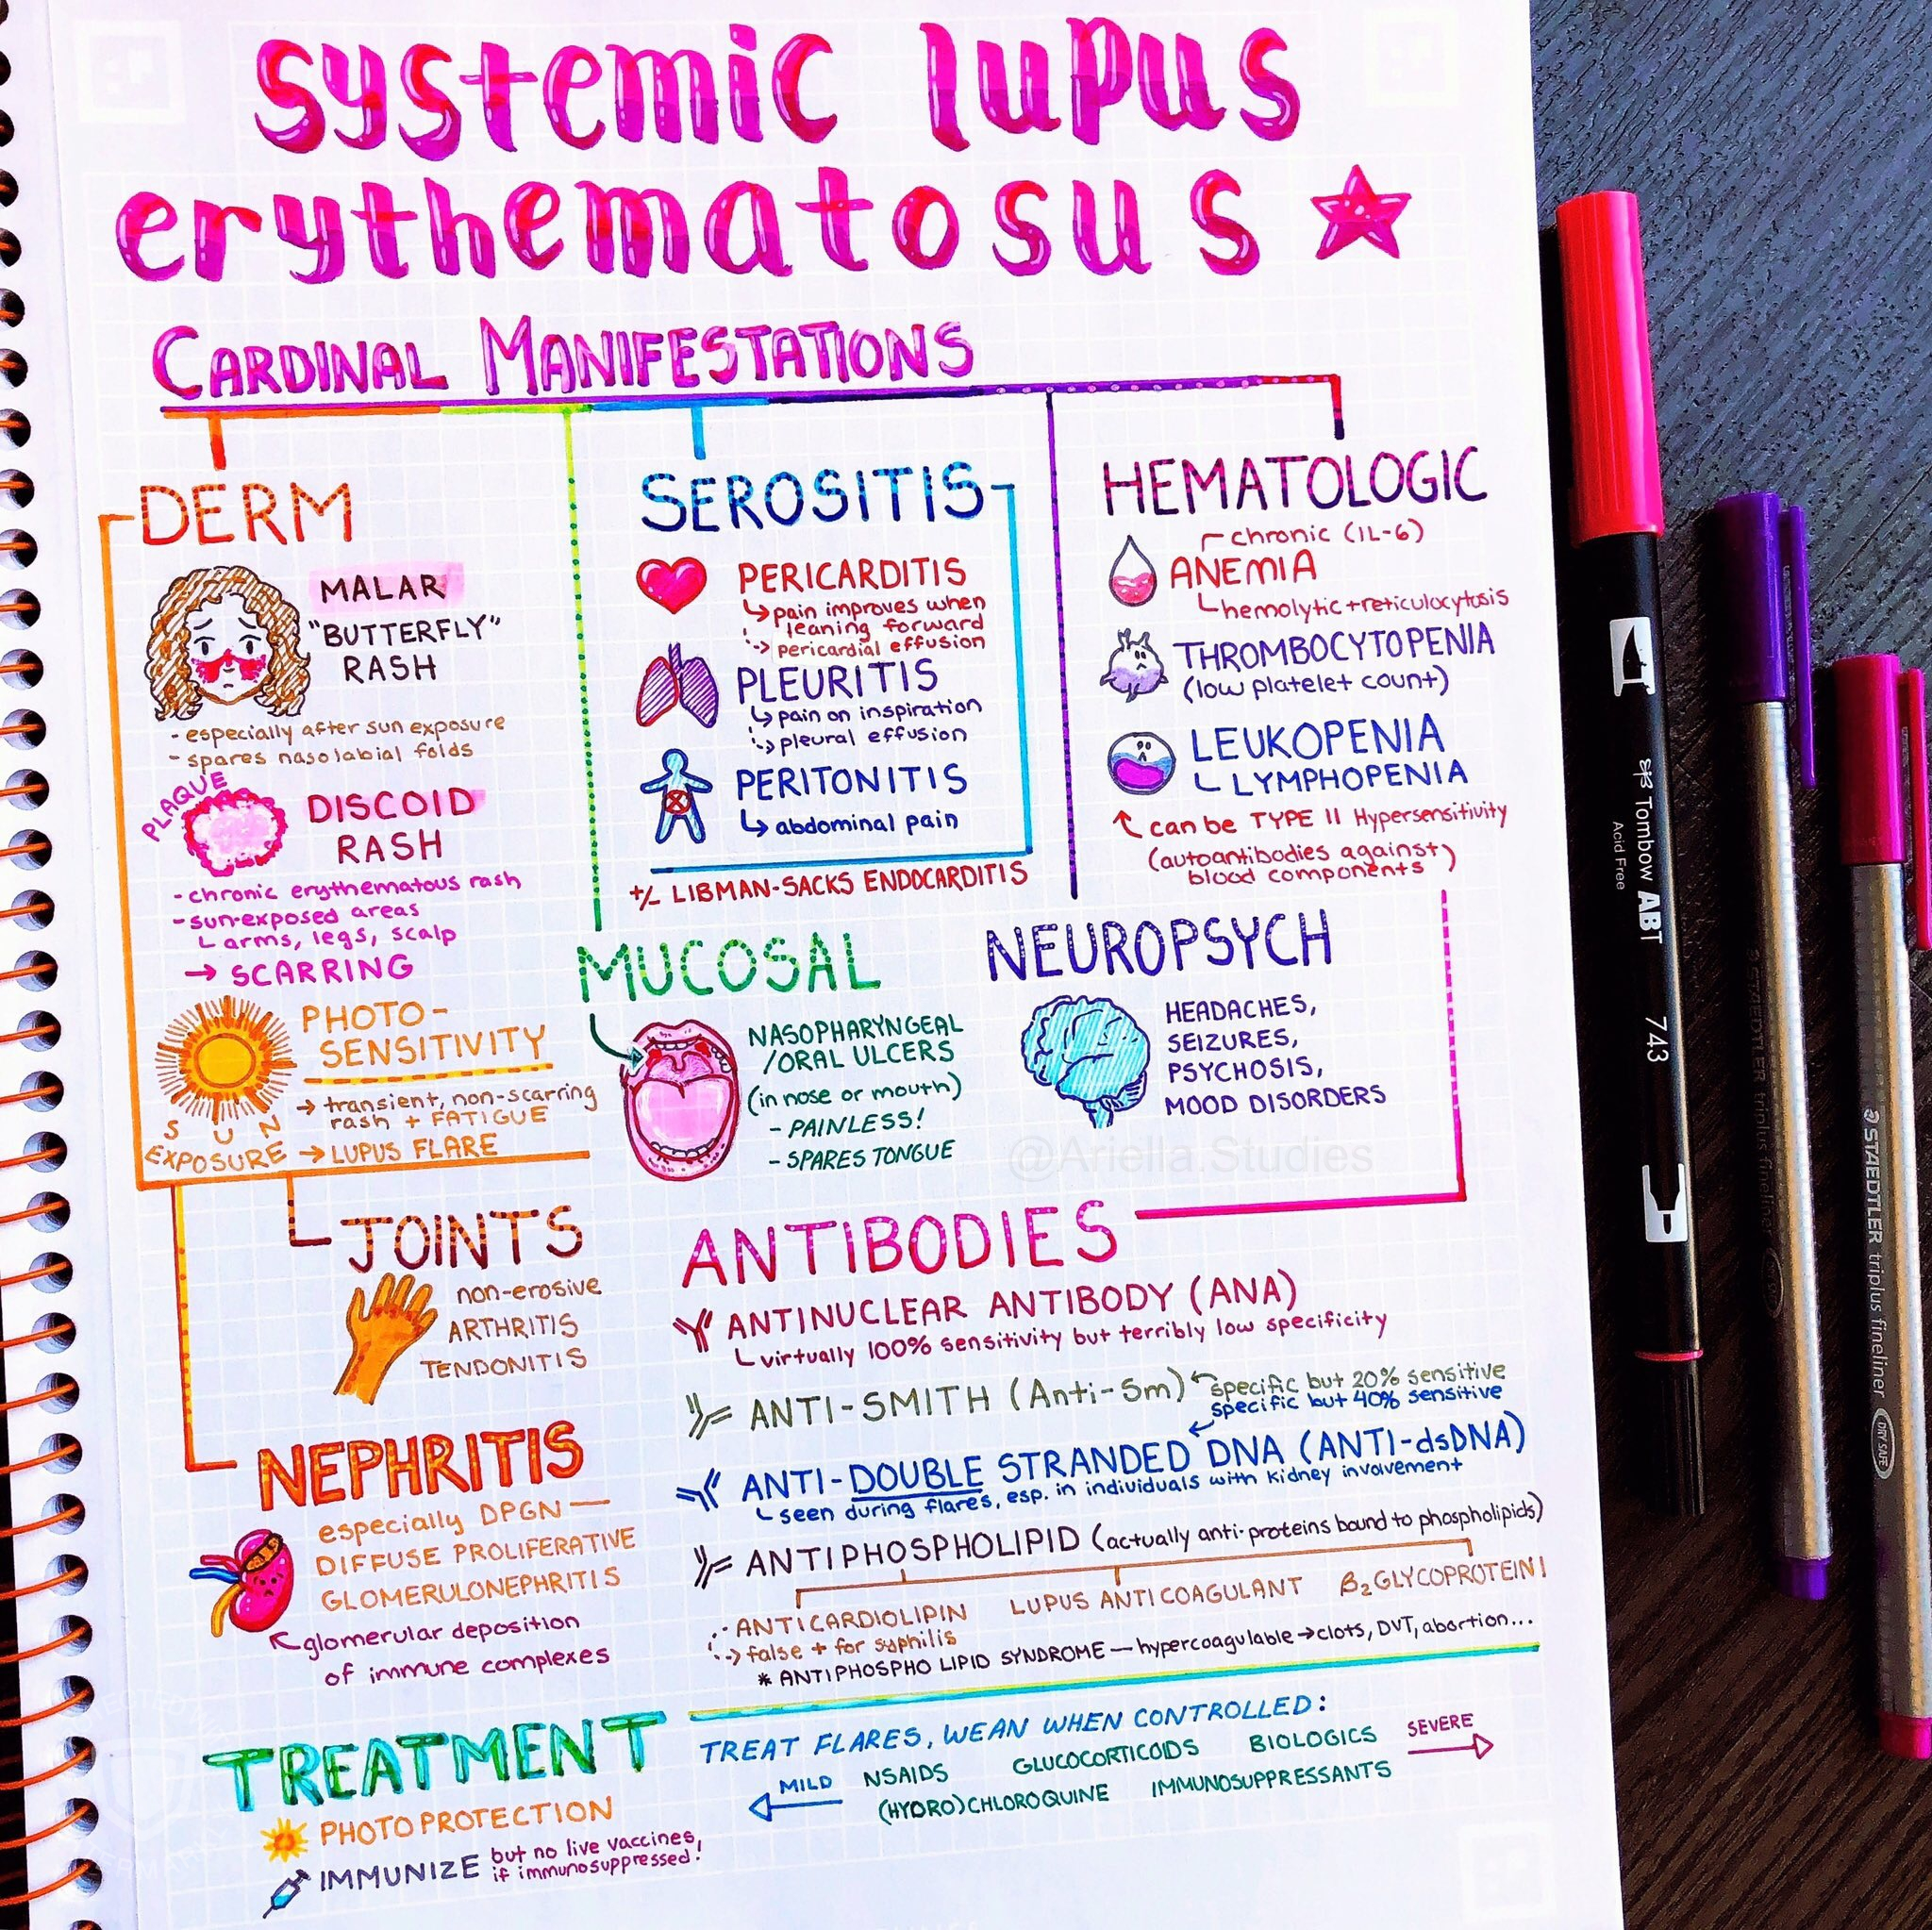 systemic lupus
erythematosus
CARDINAL MANIFESTATIONS
DERM
MALAR
"BUTTERFLY"
RASH
- especially after sun exposure
- spares nasolabial folds
PLAQUE
DISCOID
RASH
- chronic erythematous rash
- sun-exposed areas
arms, legs, scalp
→ SCARRING
PHOTO-
SENSITIVITY
→ transient, non-scarring
rash + FATIGUE
SUN
EXPOSURE → LUPUS FLARE
SEROSITIS
PERICARDITIS
pain improves when
leaning forward
pericardial effusion
PLEURITIS
pain on inspiration
pleural effusion
PERITONITIS
abdominal pain
+/- LIBMAN-SACKS ENDOCARDITIS
HEMATOLOGIC
chronic (IL-6)
ANEMIA
hemolytic + reticulocytosis
THROMBOCYTOPENIA
(low platelet count)
LEUKOPENIA
LYMPHOPENIA
can be TYPE II Hypersensitivity
(autoantibodies against)
blood components
MUCOSAL
NASOPHARYNGEAL
/ORAL ULCERS
(in nose or mouth)
- PAINLESS!
- SPARES TONGUE
NEUROPSYCH
HEADACHES,
SEIZURES,
PSYCHOSIS,
MOOD DISORDERS
@Ariella.Studies
JOINTS
non-erosive
ARTHRITIS
TENDONITIS
NEPHRITIS
especially DPGN —
DIFFUSE PROLIFERATIVE
GLOMERULONEPHRITIS
glomerular deposition
of immune complexes
ANTIBODIES
ANTINUCLEAR ANTIBODY (ANA)
virtually 100% sensitivity but terribly low specificity
ANTI-SMITH (Anti-Sm) specific but 20% sensitive
specific but 40% sensitive
ANTI-DOUBLE STRANDED DNA (ANTI-dsDNA)
seen during flares, esp. in individuals with kidney involvement
ANTIPHOSPHOLIPID (actually anti-proteins bound to phospholipids)
ANTICARDIOLIPIN LUPUS ANTICOAGULANT β₂GLYCOPROTEIN I
false + for syphilis
* ANTIPHOSPHO LIPID SYNDROME — hypercoagulable → clots, DVT, abortion...
TREATMENT
PHOTOPROTECTION
IMMUNIZE but no live vaccines,
if immunosuppressed!
TREAT FLARES, WEAN WHEN CONTROLLED:
MILD NSAIDS GLUCOCORTICOIDS BIOLOGICS SEVERE
(HYDRO)CHLOROQUINE IMMUNOSUPPRESSANTS
Tombow ABT 743
Acid Free
STAEDTLER triplus fineliner
STAEDTLER triplus fineliner DRY SAFE